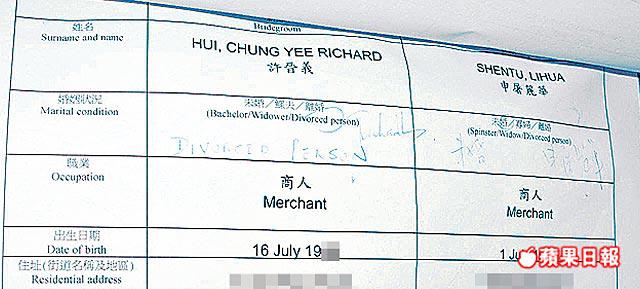 Bridegroom
姓名
Surname and name
HUI, CHUNG YEE RICHARD
許晉義
SHENTU, LIHUA
申屠麗華
婚姻狀況
Marital condition
未婚／鰥夫／離婚
(Bachelor/Widower/Divorced person)
DIVORCED PERSON
未婚／寡婦／離婚
(Spinster/Widow/Divorced person)
職業
Occupation
商人
Merchant
商人
Merchant
出生日期
Date of birth
16 July 19
1 Ju
住址(街道名稱及地區)
Residential address
蘋果日報